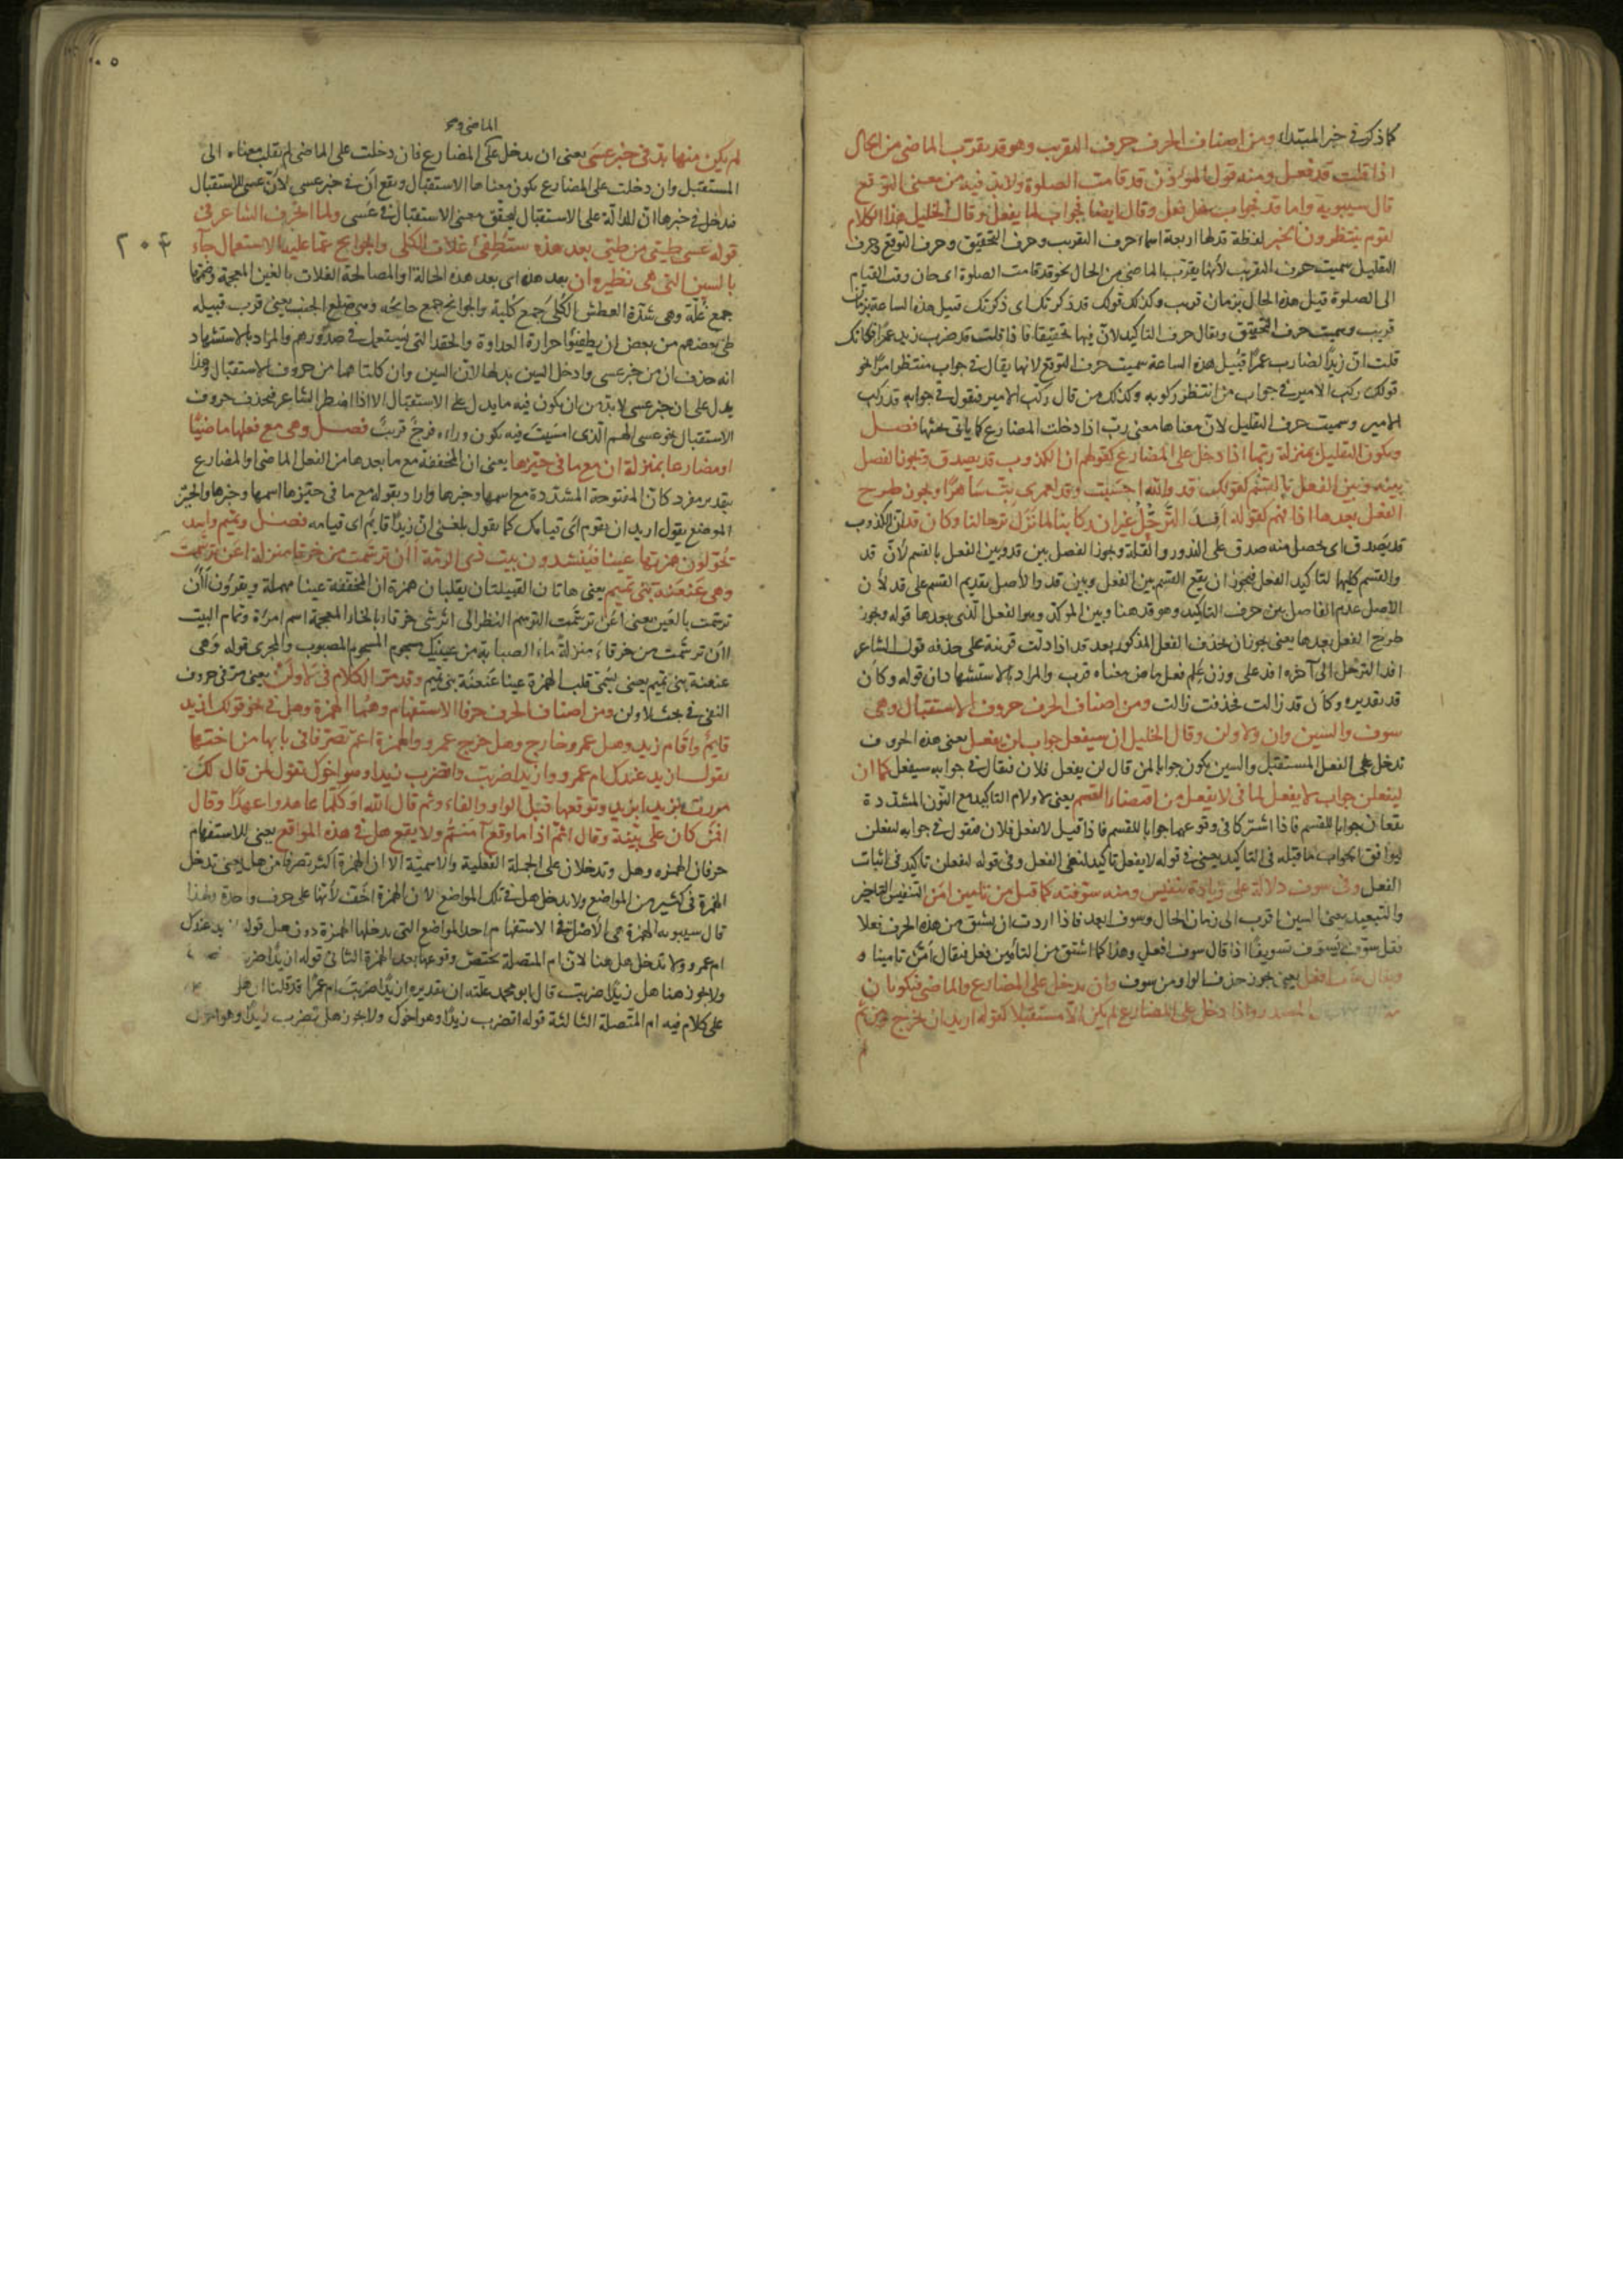 كما ذكر في خبر المبتداء ومن اصناف الحرف حرف التقريب وهو قد يقرّب الماضي من الحال
اذا قلت قد فعل ومنه قول المؤذن قد قامت الصلوة ولا بد فيه من معنى التوقع
قال سيبويه واما قد فجواب هل فعل وقال ايضا فجواب لما يفعل وقال الخليل هذا الكلام
لقوم ينتظرون الخبر لفظة قد لها اربعة اسماء حرف التقريب وحرف التحقيق وحرف التوقع وحرف
التقليل سميت حرف التقريب لأنها يقرّب الماضي من الحال نحو قد قامت الصلوة اى حان وقت القيام
الى الصلوة قبيل هذه الحال بزمان قريب وكذلك قولك قد ذكرتك اى ذكرتك قبيل هذه الساعة بزمان
قريب وسميت حرف التحقيق ويقال حرف التاكيد لان فيها تحقيقا فاذا قلت قد ضرب زيد عمرا فكانك
قلت ان زيدا لضارب عمرا قبيل هذه الساعة سميت حرف التوقع لانها يقال في جواب منتظر امرا نحو
قولك ركب الامير في جواب من انتظر ركوبه وكذلك من قال ركب الامير فنقول في جوابه قد ركب
الامير وسميت حرف التقليل لان معناها معنى رب اذا دخلت المضارع كما ياتي بحثها فصل
ويكون للتقليل بمنزلة ربما اذا دخل على المضارع كقولهم ان الكذوب قد يصدق ويجوز الفصل
بينه وبين الفعل بالقسم كقولك قد والله احسنت وقد لعمري بت ساهرا ويجوز طرح
الفعل بعدها اذا فهم كقوله أفد الترحل غير ان ركابنا لما تزل برحالنا وكان قد ان الكذوب
قد يصدق اى يحصل منه صدق على الندور والقلة ويجوز الفصل بين قد وبين الفعل بالقسم لأن قد
والقسم كليهما لتاكيد الفعل فيجوز ان يقع القسم بين الفعل وبين قد والأصل بتقديم القسم على قد لأن
الاصل عدم الفاصل بين حرف التاكيد وهو قد هنا وبين الموكد وهو الفعل الذي بعدها قوله ويجوز
طرح الفعل بعدها يعني يجوز ان يحذف الفعل المذكور بعد قد اذا دلت قرينة على حذفه قول الشاعر
افد الترحل الى آخره افد على وزن علم فعل ماض معناه قرب والمراد بالاستشهاد ان قوله وكأن
قد تقديره وكأن قد زالت فحذفت زالت ومن اصناف الحرف حروف الاستقبال وهي
سوف والسين وان ولا ولن وقال الخليل ان سيفعل جواب لن يفعل يعني هذه الحروف
تدخل على الفعل المستقبل والسين يكون جوابا لمن قال لن يفعل فلان فيقال في جوابه سيفعل كما ان
ليفعلن جواب لا يفعل لما في لا يفعل من اقتضاء القسم يعني لا ولام التاكيد مع النون المشددة
يقعان جوابا للقسم فاذا اشتركا في وقوعهما جوابا للقسم فاذا قيل لا يفعل فلان فنقول في جوابه ليفعلن
ليوافق الجواب ما قبله في التاكيد يعني في قوله لا يفعل تاكيد لنفى الفعل وفي قوله ليفعلن تاكيد في اثبات
الفعل وفي سوف دلالة على زيادة تنفيس ومنه سوفته كما قيل من تامين امّن التنفيس التاخير
والتبعيد يعني السين اقرب الى زمان الحال وسوف ابعد فاذا اردت ان يشتق من هذه الحرف فعلا
فقل سوّف يسوّف تسويفا اذا قال سوف افعل وهذا كما اشتق من التأمين فعل فيقال أمّن تامينا و
ويقال سف افعل يعني يجوز حذف الواو من سوف وان يدخل على المضارع والماضي فيكونان
المصدر واذا دخل على المضارع لم يكن الا مستقبلا كقوله اريد ان يخرج ومن ثم
لم
الماضي وهو
لم يكن منها بد في خبر عسى يعني ان يدخل على المضارع فان دخلت على الماضي لم يقلب معناه الى
المستقبل وان دخلت على المضارع يكون معناها الاستقبال ويقع ان في خبر عسى لأن عسى للاستقبال
فدخل في خبرها ان للدالة على الاستقبال ليحقق معنى الاستقبال في عسى ولما انحرف الشاعر في
قوله عسى طيئ من طيئ بعد هذه ستطفئ غلات الكلى والجوانح عما عليه الاستعمال جآء
٢٠٤
بالسين التي هي نظيرة ان بعد هذه اى بعد هذه الحالة او المصالحة الغلات بالغين المعجمة وضمها
جمع غلة وهي شدة العطش الكلى جمع كلية والجوانح جمع جانحة وهي ضلع الجنب يعني قرب قبيلة
طى بعضهم من بعض ان يطفيئوا حرارة العداوة والحقد التي يستعمل في صدورهم والمراد بالاستشهاد
انه حذف ان من خبر عسى وادخل السين بدلها لأن السين وان كلتاهما من حروف الاستقبال وهذا
يدل على ان خبر عسى لا بد من ان يكون فيه ما يدل على الاستقبال الا اذا اضطر الشاعر فيحذف حروف
الاستقبال نحو عسى الهم الذي امسيت فيه يكون وراءه فرج قريب فصل وهي مع فعلها ماضيا
او مضارعا بمنزلة ان مع ما في حيزها يعني ان المخففة مع ما بعدها من الفعل الماضي او المضارع
بتقدير مفرد كان المفتوحة المشددة مع اسمها وخبرها واراد بقوله مع ما في حيزها اسمها وخبرها والحيز
الموضع يقول اريد ان يقوم اى قيامك كما يقول بلغني ان زيدا قايم اى قيامه فصل وتميم واسد
تحولون همزتها عينا فينشدون بيت ذي الرمة أأن ترسمت من خرقا منزلة اعن ترسمت
وهي عنعنة بني تميم يعني هاتان القبيلتان يقلبان همزة ان المخففة عينا مهملة ويقرؤن أأن
ترسمت بالعين يعني اعن ترسمت الترسم النظر الى اثر شى خرقاء بالخاء المعجمة اسم امرأة وتمام البيت
اأن ترسمت من خرقاء منزلة ماء الصبابة من عينيك مسجوم المسجوم المصبوب والمجرى قوله وهي
عنعنة بني تميم يعني يسمى قلب الهمزة عينا عنعنة بني تميم وقد مر الكلام في لا ولن يعني مر في حروف
النفى في بحث لا ولن ومن اصناف الحرف حرفا الاستفهام وهما الهمزة وهل في نحو قولك أزيد
قايم وأقام زيد وهل عمرو خارج وهل خرج عمرو والهمزة اعم تصرفا في بابها من اختها
يقول ازيد عندك ام عمرو وازيدا ضربت واتضرب زيدا وهو اخوك تقول لمن قال لك
مررت بزيد ابزيد وتوقعها قبل الواو والفاء وثم قال الله اوكلما عاهدوا عهدا وقال
افمن كان على بينة وقال اثم اذا ما وقع آمنتم ولا يقع هل في هذه المواقع يعني للاستفهام
حرفان الهمزة وهل وتدخلان على الجملة الفعلية والاسمية الا ان الهمزة اكثر تصرفا من هل يعني تدخل
الهمزة في كثير من المواضع ولا يدخل هل في تلك المواضع لان الهمزة اخف لأنها على حرف واحدة ولهذا
قال سيبويه الهمزة هي الأصل في الاستفهام احد المواضع التي يدخلها الهمزة دون هل قوله ازيد عندك
ام عمرو ولا تدخل هل هنا لان ام المتصلة يختص وقوعها بعد الهمزة الثاني قوله ازيدا ضربت
ولا يجوز هنا هل زيدا ضربت قال ابو محمد علته ان تقديره ازيدا ضربت ام عمرا قد قلنا ان هل
على كلام فيه ام المتصلة الثالثة قوله اتضرب زيدا وهو اخوك ولا يجوز هل تضرب زيدا وهو اخوك